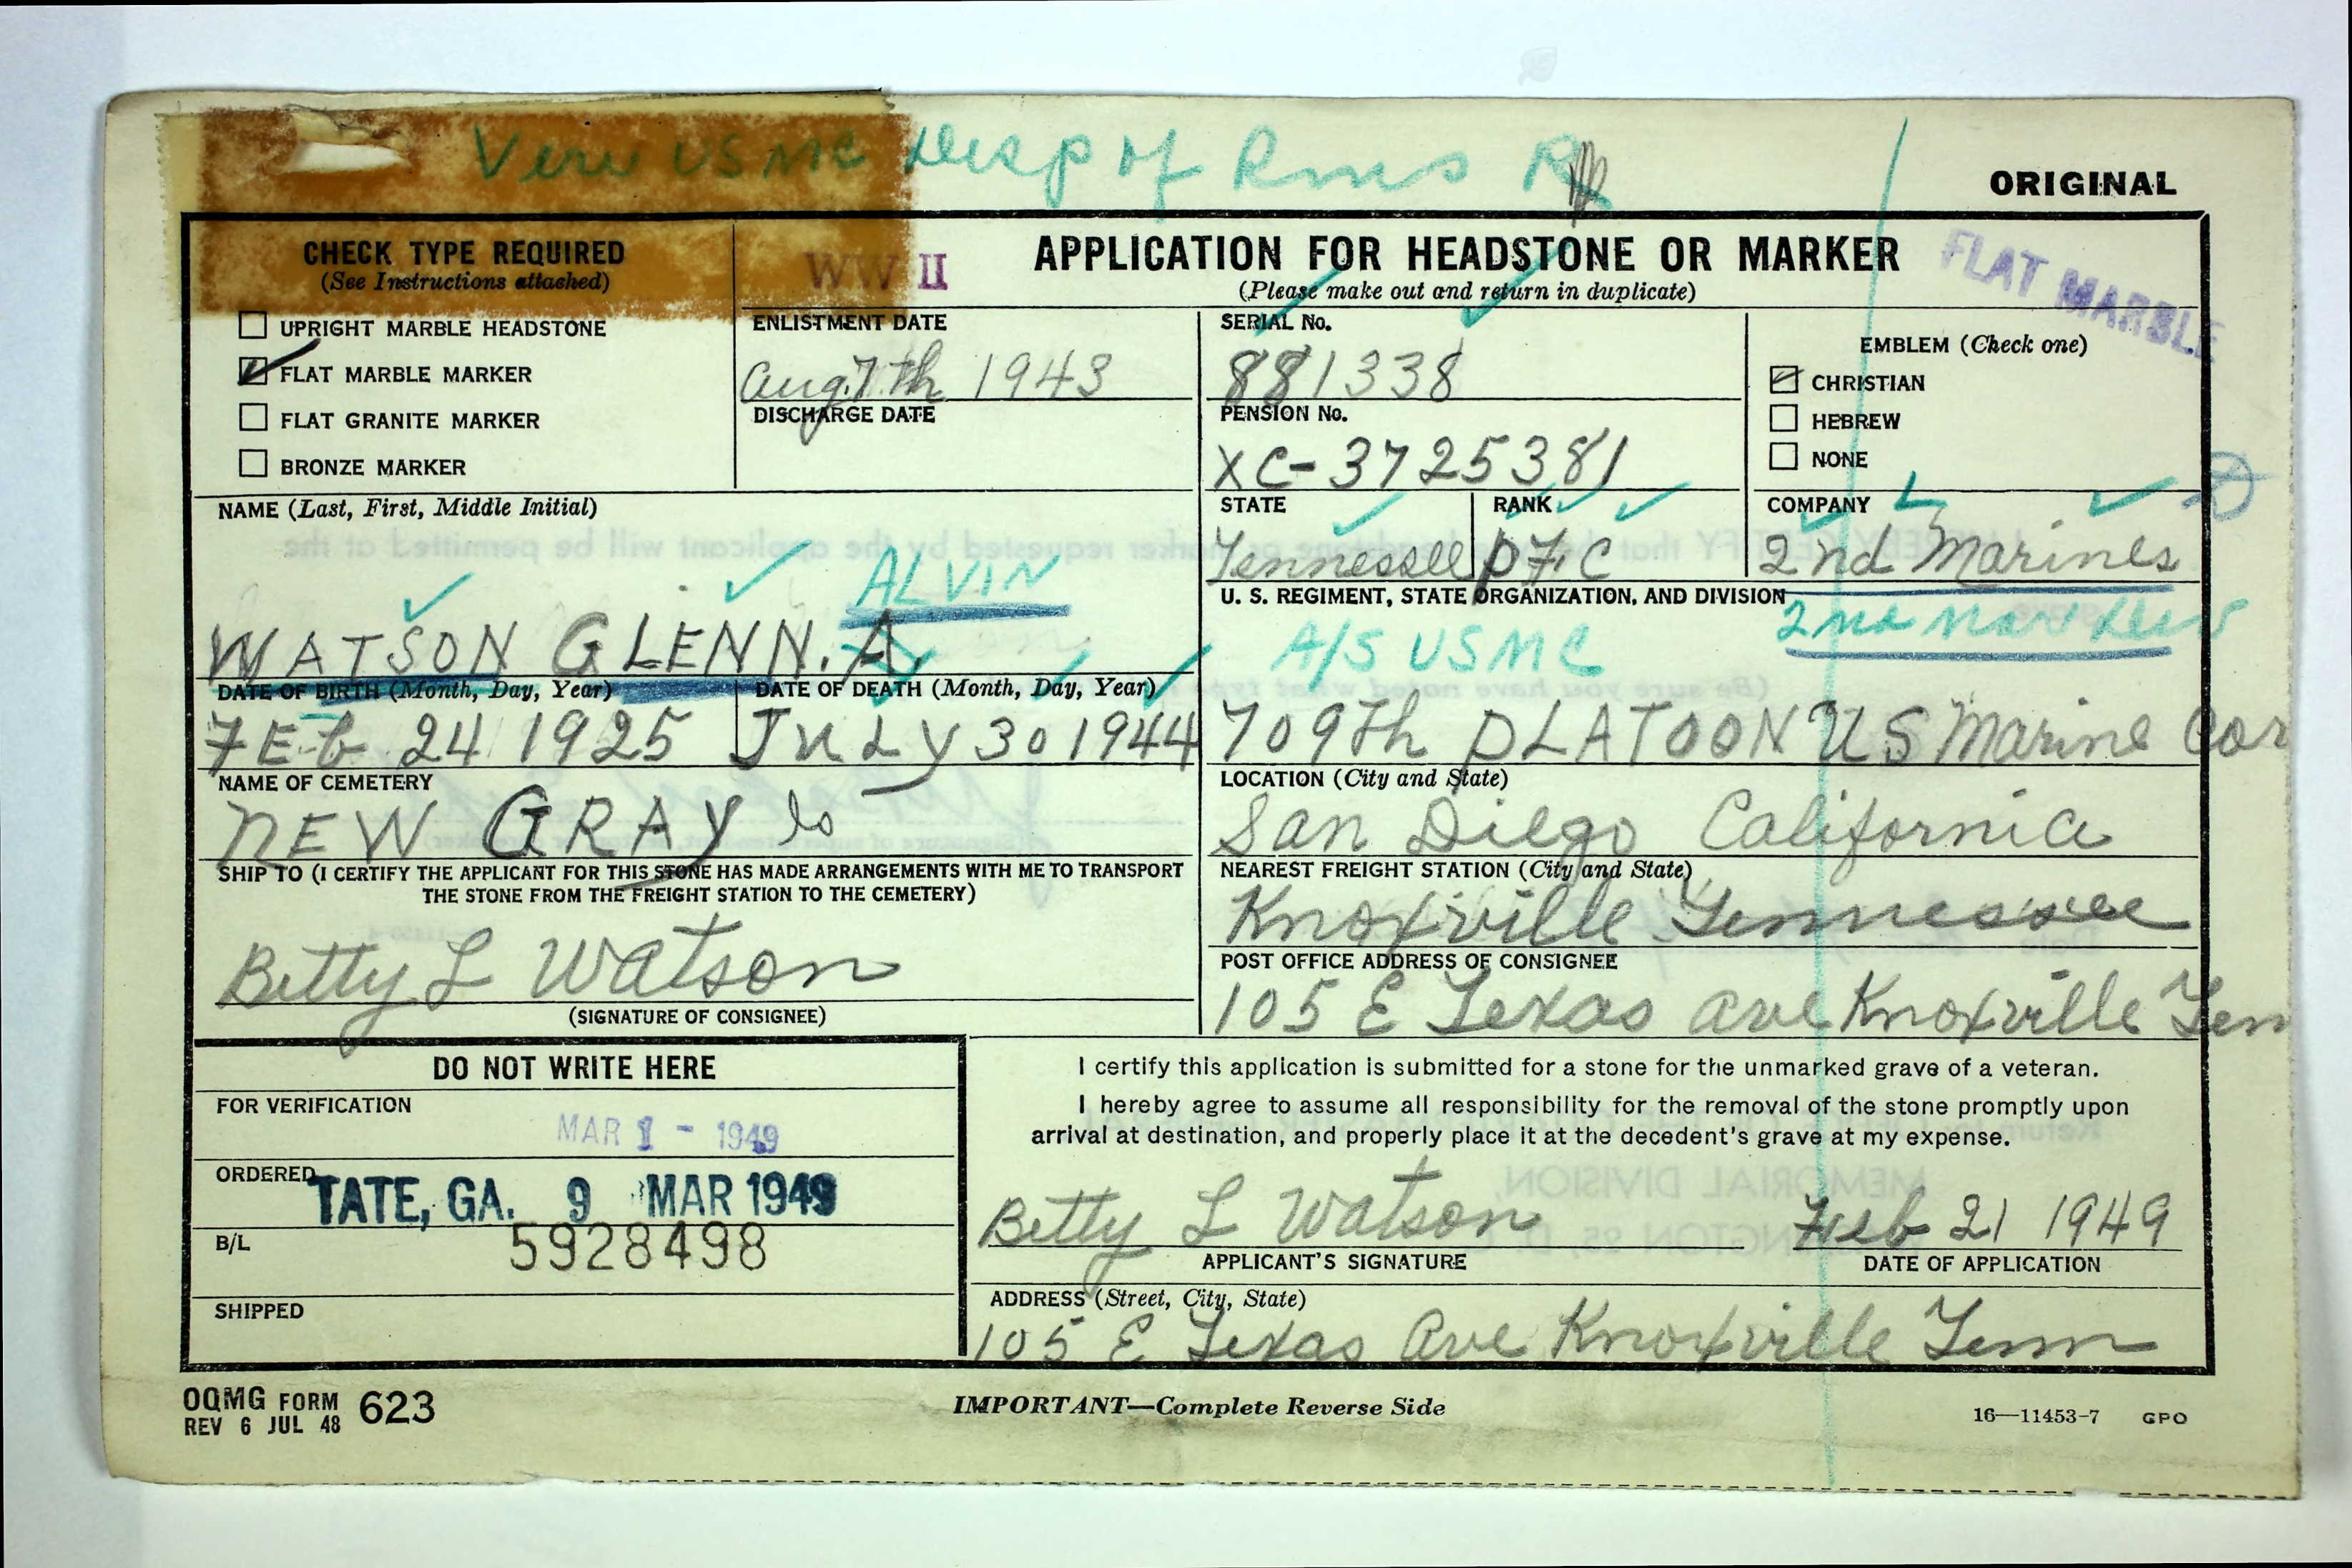 Veri USMC Disp of Rms
ORIGINAL
CHECK TYPE REQUIRED
(See Instructions attached)
WW II
APPLICATION FOR HEADSTONE OR MARKER
(Please make out and return in duplicate)
FLAT MARBLE
UPRIGHT MARBLE HEADSTONE
FLAT MARBLE MARKER
FLAT GRANITE MARKER
BRONZE MARKER
ENLISTMENT DATE
Aug. 7th 1943
DISCHARGE DATE
SERIAL No.
881338
PENSION No.
XC-3725381
EMBLEM (Check one)
CHRISTIAN
HEBREW
NONE
NAME (Last, First, Middle Initial)
ALVIN
WATSON GLENN. A.
STATE
Tennessee
RANK
PFC
COMPANY
2nd Marines
U. S. REGIMENT, STATE ORGANIZATION, AND DIVISION
2nd Mar Div
A/S USMC
709th PLATOON US Marine Cor
DATE OF BIRTH (Month, Day, Year)
FEb 24 1925
DATE OF DEATH (Month, Day, Year)
JULY 30 1944
NAME OF CEMETERY
NEW GRAY
LOCATION (City and State)
San Diego California
SHIP TO (I CERTIFY THE APPLICANT FOR THIS STONE HAS MADE ARRANGEMENTS WITH ME TO TRANSPORT
THE STONE FROM THE FREIGHT STATION TO THE CEMETERY)
Betty L Watson
(SIGNATURE OF CONSIGNEE)
NEAREST FREIGHT STATION (City and State)
Knoxville Tennessee
POST OFFICE ADDRESS OF CONSIGNEE
105 E Texas Ave Knoxville Ten
DO NOT WRITE HERE
FOR VERIFICATION
MAR 1 - 1949
ORDERED
TATE, GA. 9 MAR 1949
B/L
5928498
SHIPPED
I certify this application is submitted for a stone for the unmarked grave of a veteran.
I hereby agree to assume all responsibility for the removal of the stone promptly upon
arrival at destination, and properly place it at the decedent's grave at my expense.
Betty L Watson
Feb 21 1949
APPLICANT'S SIGNATURE
DATE OF APPLICATION
ADDRESS (Street, City, State)
105 E Texas Ave Knoxville Tenn
OQMG FORM 623
REV 6 JUL 48
IMPORTANT—Complete Reverse Side
16—11453-7 GPO